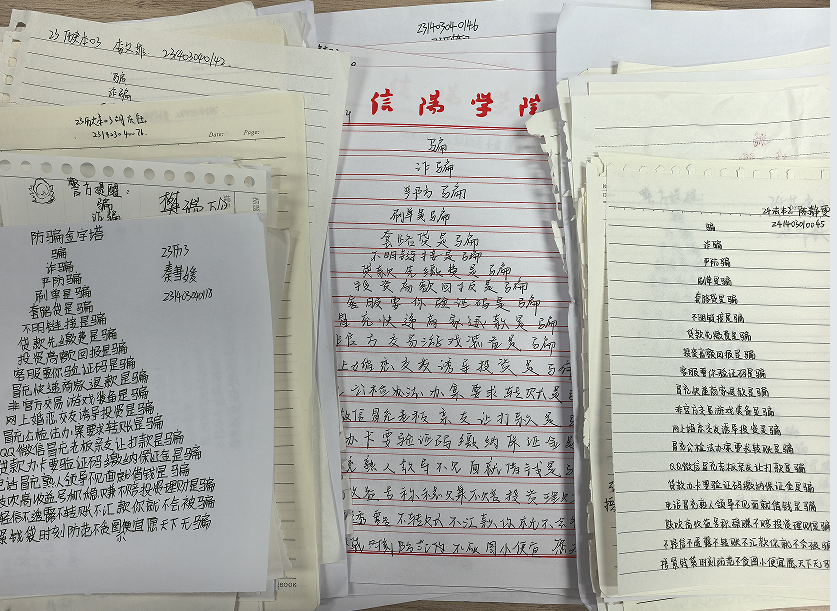 23历本03
231403040142
骗
诈骗
23历本03
231403040076
Date:
Page:
警方提醒:
骗
诈骗
防骗金字塔
骗
诈骗
严防骗
刷单是骗
套路贷是骗
不明链接是骗
贷款先缴费是骗
投资高额回报是骗
客服要你验证码是骗
冒充快递商家退款是骗
非官方交易游戏装备是骗
网上婚恋交友诱导投资是骗
冒充公检法办案要求转账是骗
QQ微信冒充老板亲友让打款是骗
贷款办卡要验证码缴纳保证金是骗
电话冒充熟人领导不见面就借钱是骗
鼓吹高收益号称稳赚不赔投资理财是骗
轻信不透露不转账不汇款你就不会被骗
捂紧钱袋时刻防范不贪图便宜愿天下无骗
231403040118
NOTEBOOK
231403040146
信陽学院
骗
诈骗
严防骗
刷单是骗
套路贷是骗
不明链接是骗
贷款先缴费是骗
投资高额回报是骗
客服要你验证码是骗
冒充快递商家退款是骗
官方交易游戏装备是骗
上婚恋交友诱导投资是
公检法办案要求转账是
微信冒充老板亲友让打款是
办卡要验证码缴纳保证金是
熟人领导不见面就借钱是
号称稳赚不赔投资理
不转账不汇款你就不会
时刻防范不贪图小便宜 愿
241403010045
骗
诈骗
严防骗
刷单是骗
套路贷是骗
不明链接是骗
贷款先缴费是骗
投资高额回报是骗
客服要你验证码是骗
冒充快递商家退款是骗
非官方交易游戏装备是骗
网上婚恋交友诱导投资是骗
冒充公检法办案要求转账是骗
QQ微信冒充老板亲友让打款是骗
贷款办卡要验证码缴纳保证金是骗
电话冒充熟人领导不见面就借钱是骗
鼓吹高收益号称稳赚不赔投资理财是骗
不轻信不透露不转账不汇款你就不会被骗
捂紧钱袋时刻防范不贪图小便宜愿天下无